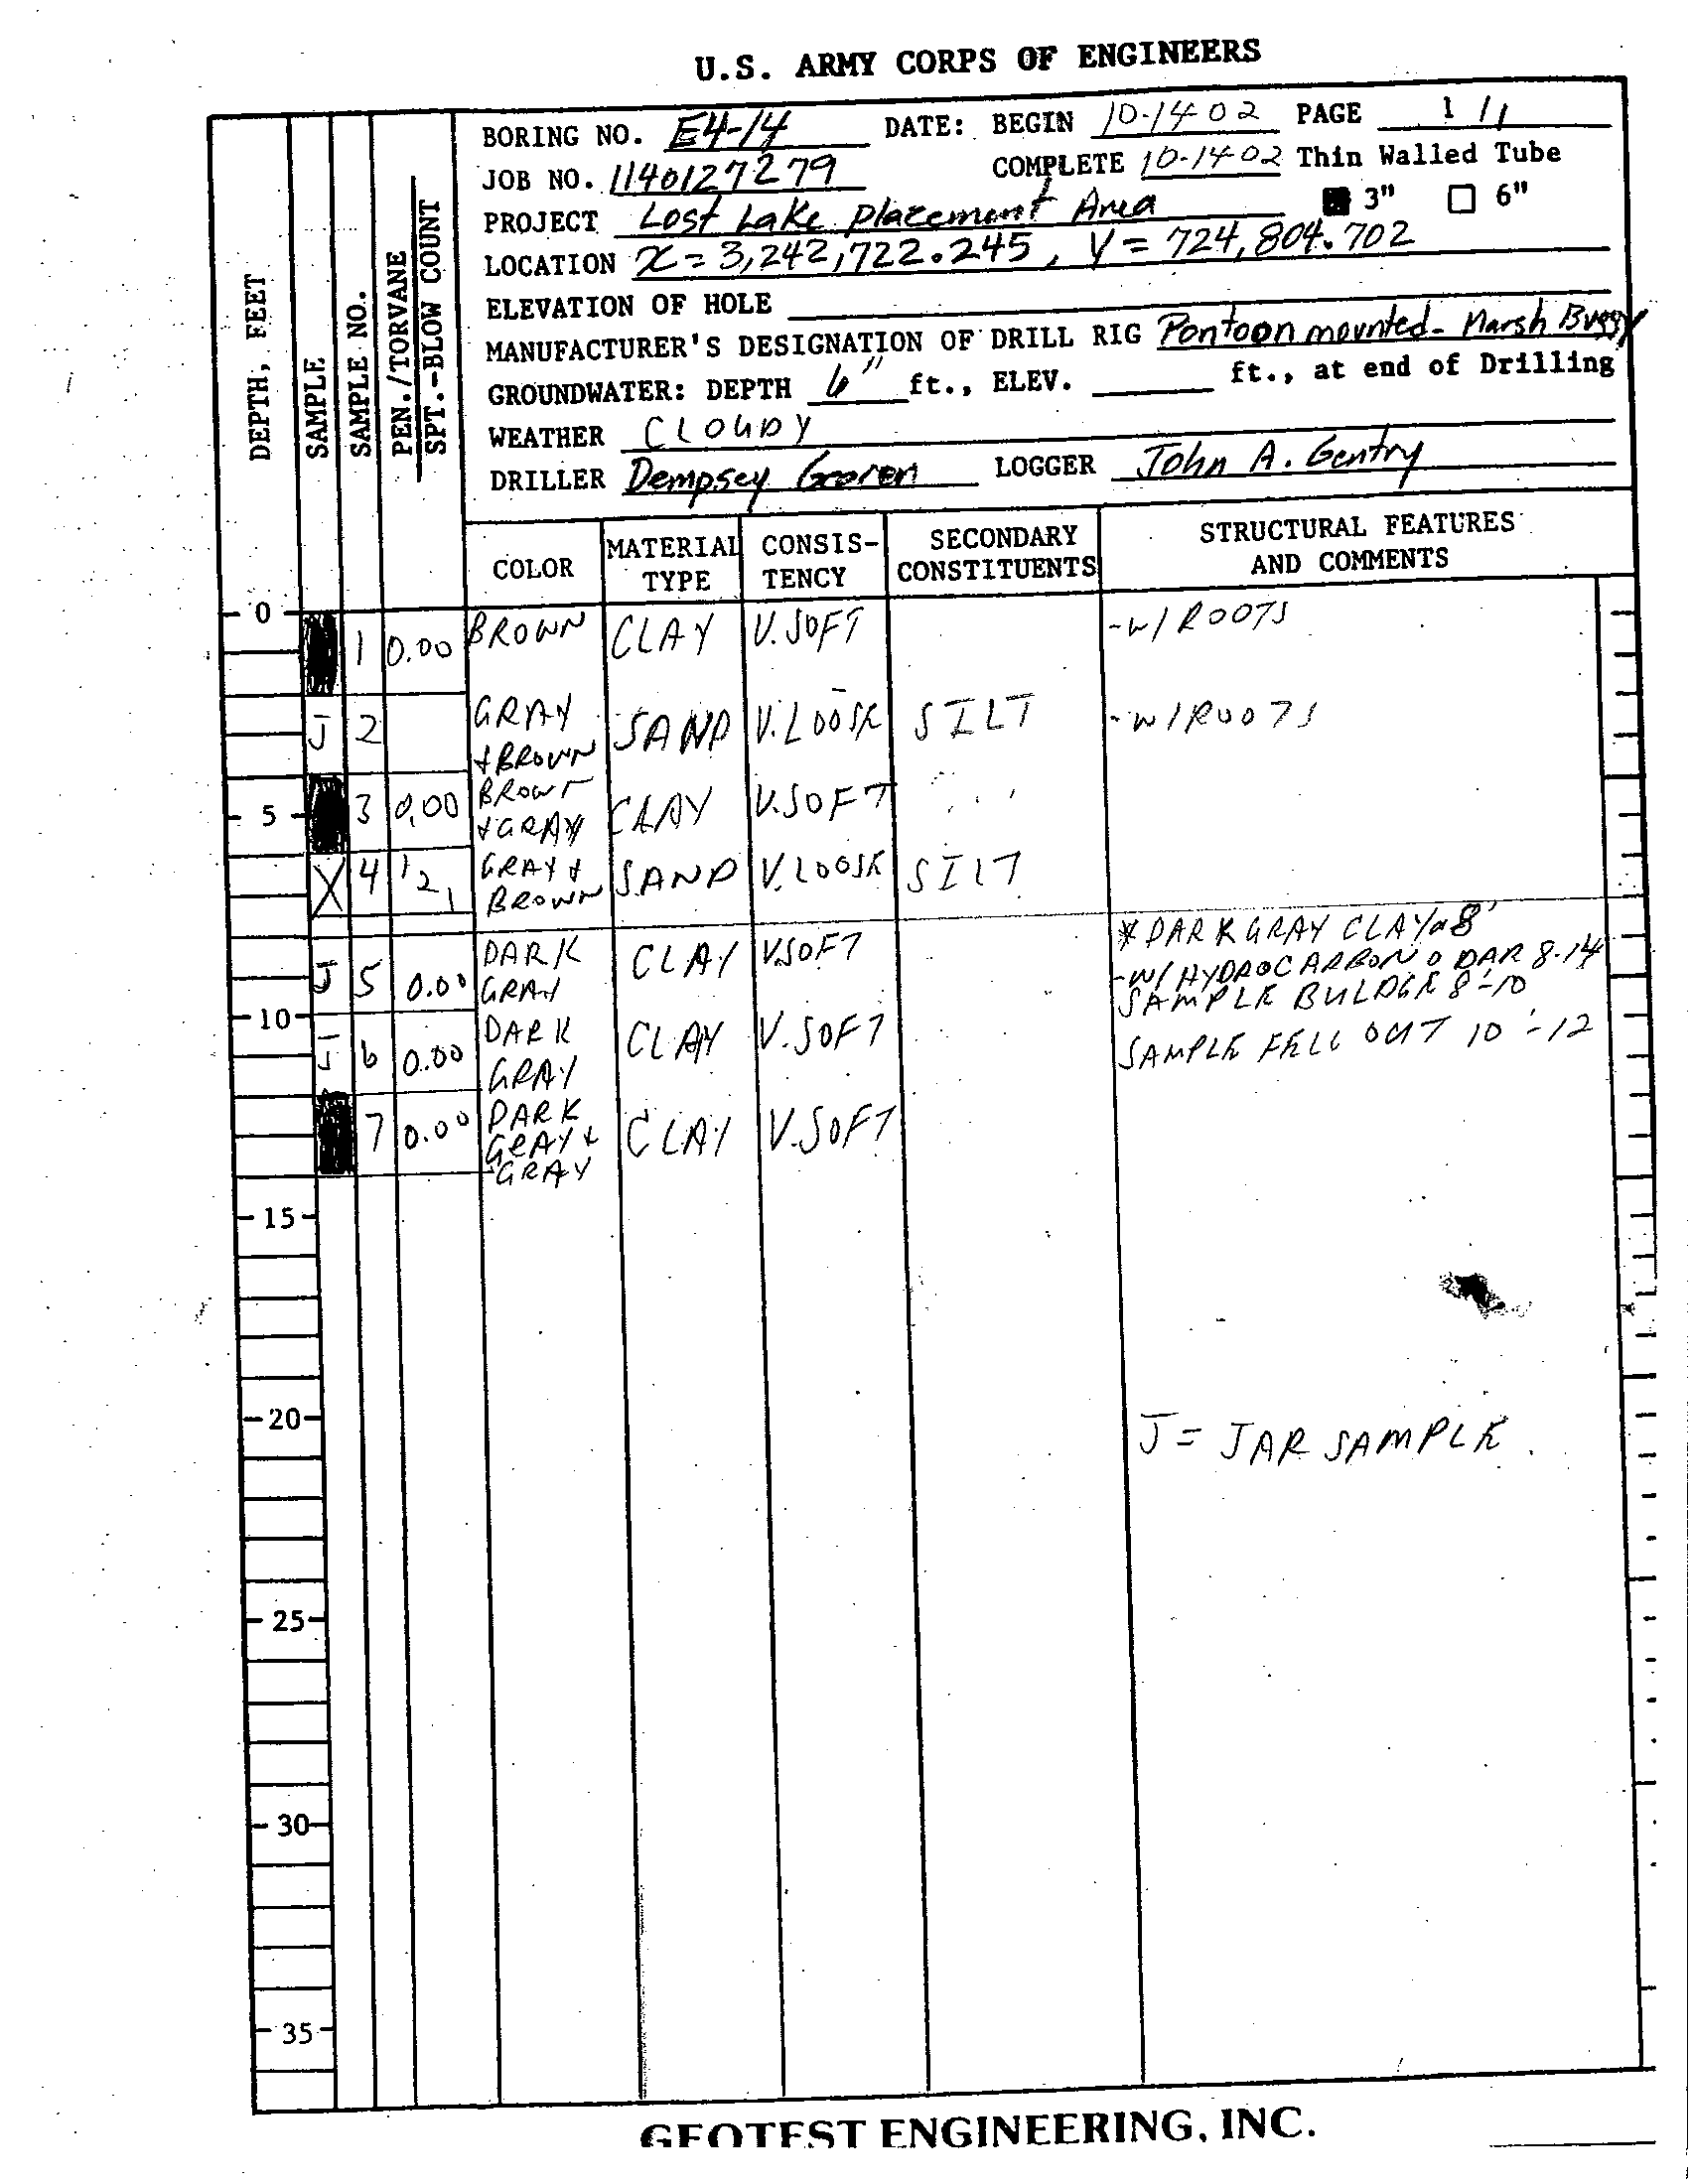 U.S. ARMY CORPS OF ENGINEERS
BORING NO. E4-14 DATE: BEGIN 10-14-02 PAGE 1 / 1
JOB NO. 1140127279 COMPLETE 10-14-02 Thin Walled Tube
PROJECT Lost Lake Placement Area 3" 6"
LOCATION X = 3,242,722.245, Y = 724,804.702
ELEVATION OF HOLE
MANUFACTURER'S DESIGNATION OF DRILL RIG Pontoon mounted - Marsh Buggy
GROUNDWATER: DEPTH 6" ft., ELEV. ft., at end of Drilling
WEATHER CLOUDY
DRILLER Dempsey LOGGER John A. Gentry
DEPTH, FEET
SAMPLE
SAMPLE NO.
PEN./TORVANE
SPT.-BLOW COUNT
COLOR MATERIAL TYPE CONSIS-TENCY SECONDARY CONSTITUENTS STRUCTURAL FEATURES AND COMMENTS
0
1 0.00 BROWN CLAY V. SOFT -W/ ROOTS
J 2 GRAY + BROWN SAND V. LOOSE SILT -W/ ROOTS
5
3 0.00 BROWN + GRAY CLAY V. SOFT
X 4 1 2 1 GRAY + BROWN SAND V. LOOSE SILT
* DARK GRAY CLAY @ 8'
J 5 0.00 DARK GRAY CLAY V. SOFT -W/ HYDROCARBON ODAR 8-14
SAMPLE BULDGE 8'-10
10
J 6 0.00 DARK GRAY CLAY V. SOFT SAMPLE FELL OUT 10'-12
7 0.00 DARK GRAY + GRAY CLAY V. SOFT
15
20
J = JAR SAMPLE
25
30
35
GEOTEST ENGINEERING, INC.